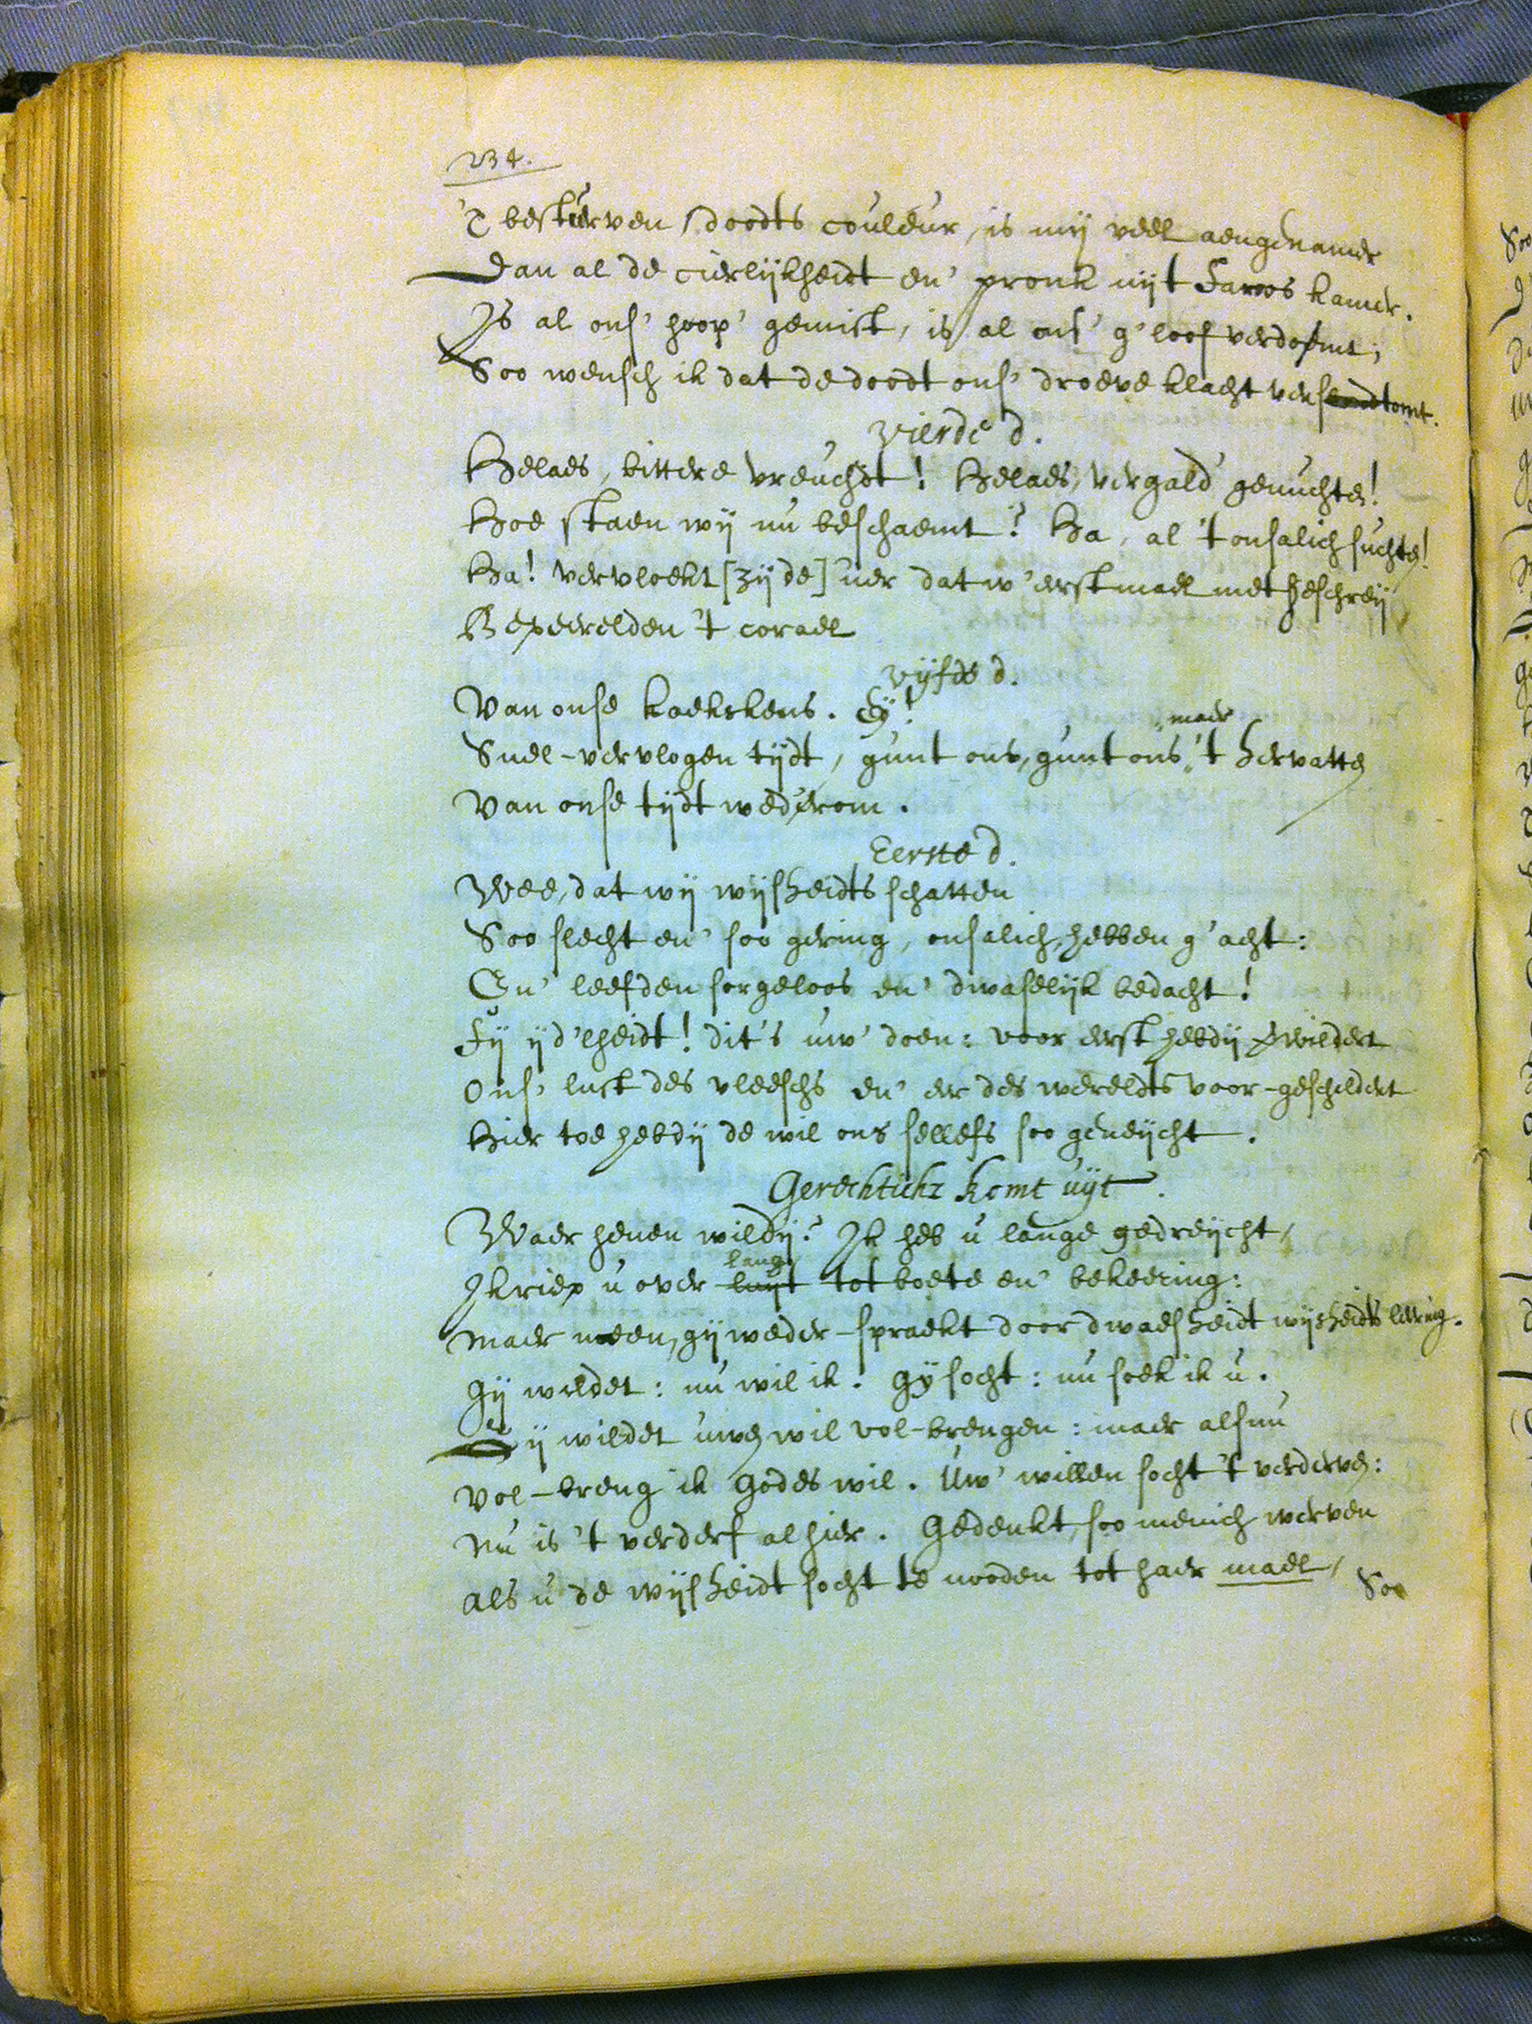 234.
'T besturven sdoodts couleur, is mij veel aengenamer
Dan al de cierlijkheidt en' pronk uijt Faroos kamer.
Is al ons' hoop' gemist, is al ons' g'loof verdoemt;
Soo wensch ik dat de doodt ons' droeve klacht
Vierde d.
Helaes, bittere vreuchdt! Helaes, vergald' genuchten!
Hoe staen wij nu beschaemt? Ha, al 't onsalich suchten!
Ha! vervloekt [zij de] uer dat w' eerstmael met geschreij
Bepeerelden 't corael
Vijfde d.
Van onse kaekskens. Eij!
Snel-vervlogen tijdt, gunt ons, gunt ons maer 't hervatten
Van onse tijdt wederom.
Eerste d.
Wee, dat wij wijsheidts schatten
Soo slecht en' soo gering, onsalich, hebben g'acht:
En' leefden sorgeloos en' dwaselijk bedacht!
Fij ijd'lheidt! dit 's uw' doen: voor eerst hebdij verwildert
Ons' lust des vleeschs en' eer des wereldts voor-geschildert
Hier toe hebdij de wil ons sellefs soo geneijcht.
Gerechticht komt uijt.
Waer henen wildij? Ik heb u lange gedreijcht,
Ik riep u over lang tot boete en' bekeering:
Maer neen, gij weder-spraekt door dwaesheidt wijsheidts leering.
Gij wildet: nu wil ik. Gij socht: nu soek ik u.
Gij wildet uwen wil vol-brengen: maer alsnu
Vol-breng ik Godes wil. Uw' willen socht 't verderven:
Nu is 't verderf alhier. Gedenkt, soo menich werven
Als u de wijsheidt socht te nooden tot haer mael,
Soo